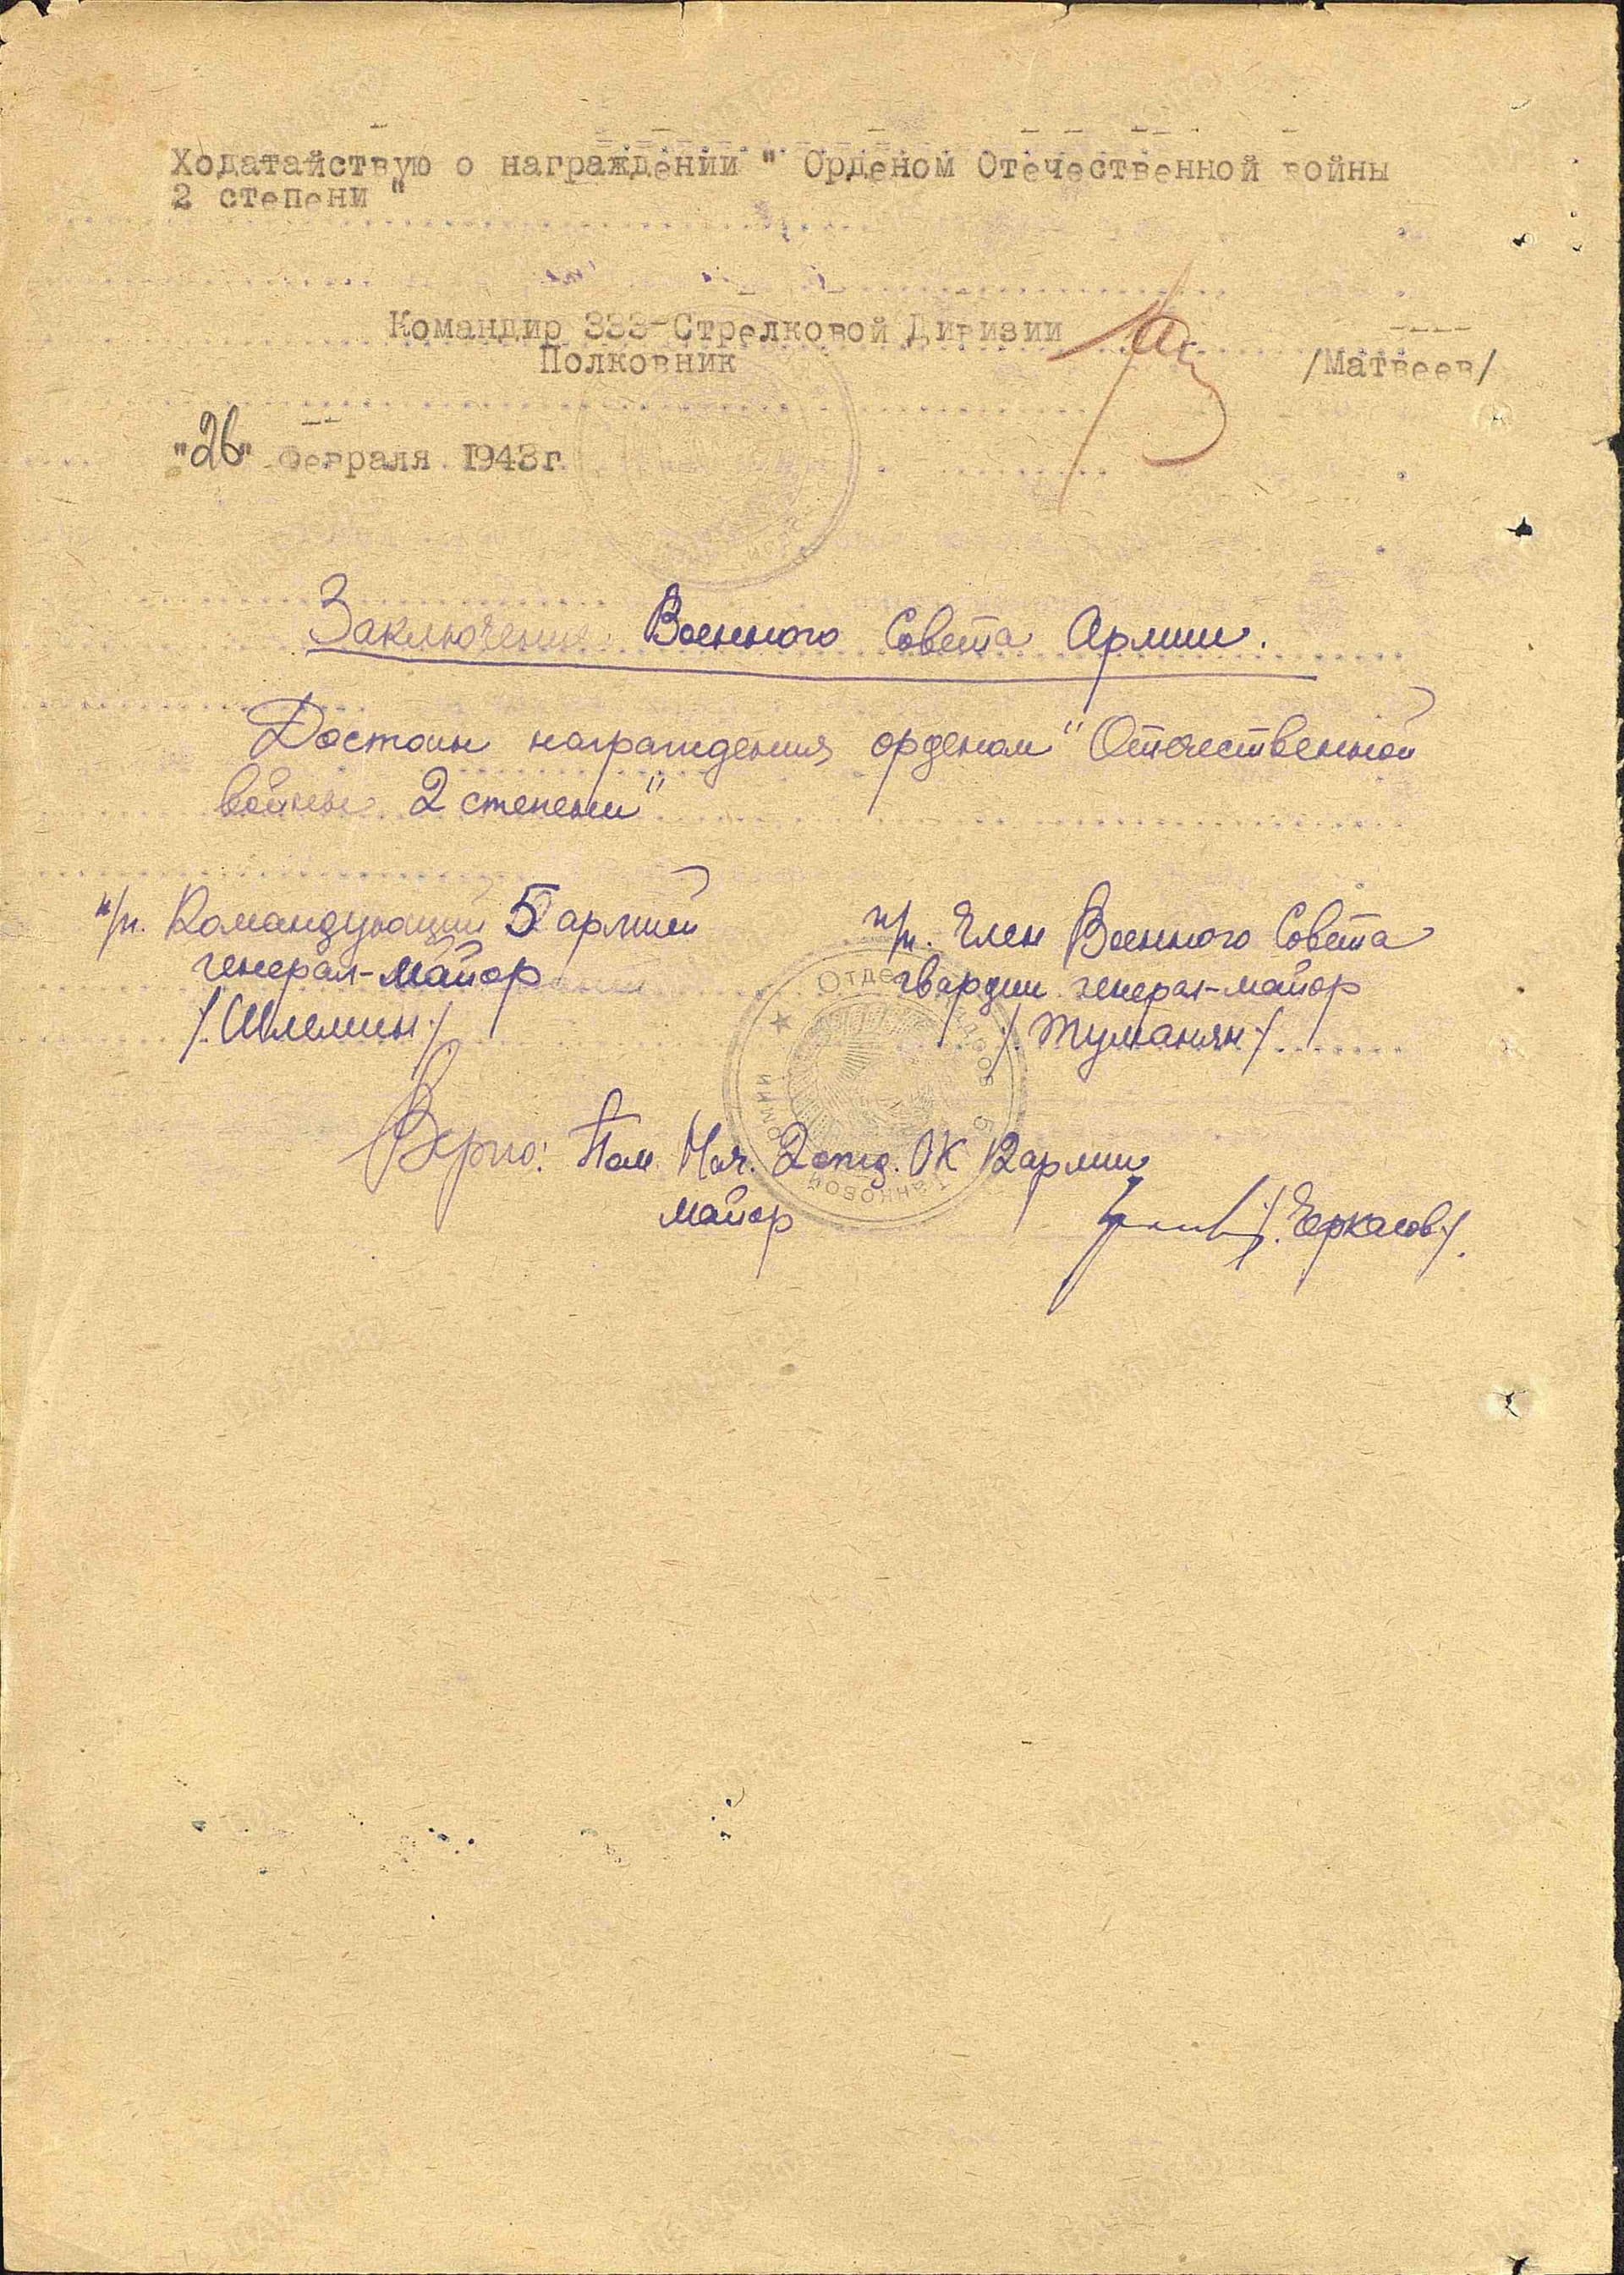 Ходатайствую о награждении " Орденом Отечественной войны
2 степени "
Командир 333-Стрелковой Дивизии
Полковник /Матвеев/
"26" Февраля 1943г
Заключение Военного Совета Армии.
Достоин награждения орденом "Отечественной
войны 2 степени"
п/п. Командующий 5 армией
генерал-майор
/.Шлемин./
п/п. Член Военного Совета
гвардии генерал-майор
/.Туманян./
Верно: Пом. Нач. 2 отд. ОК 12 армии
майор /.Черкасов./.